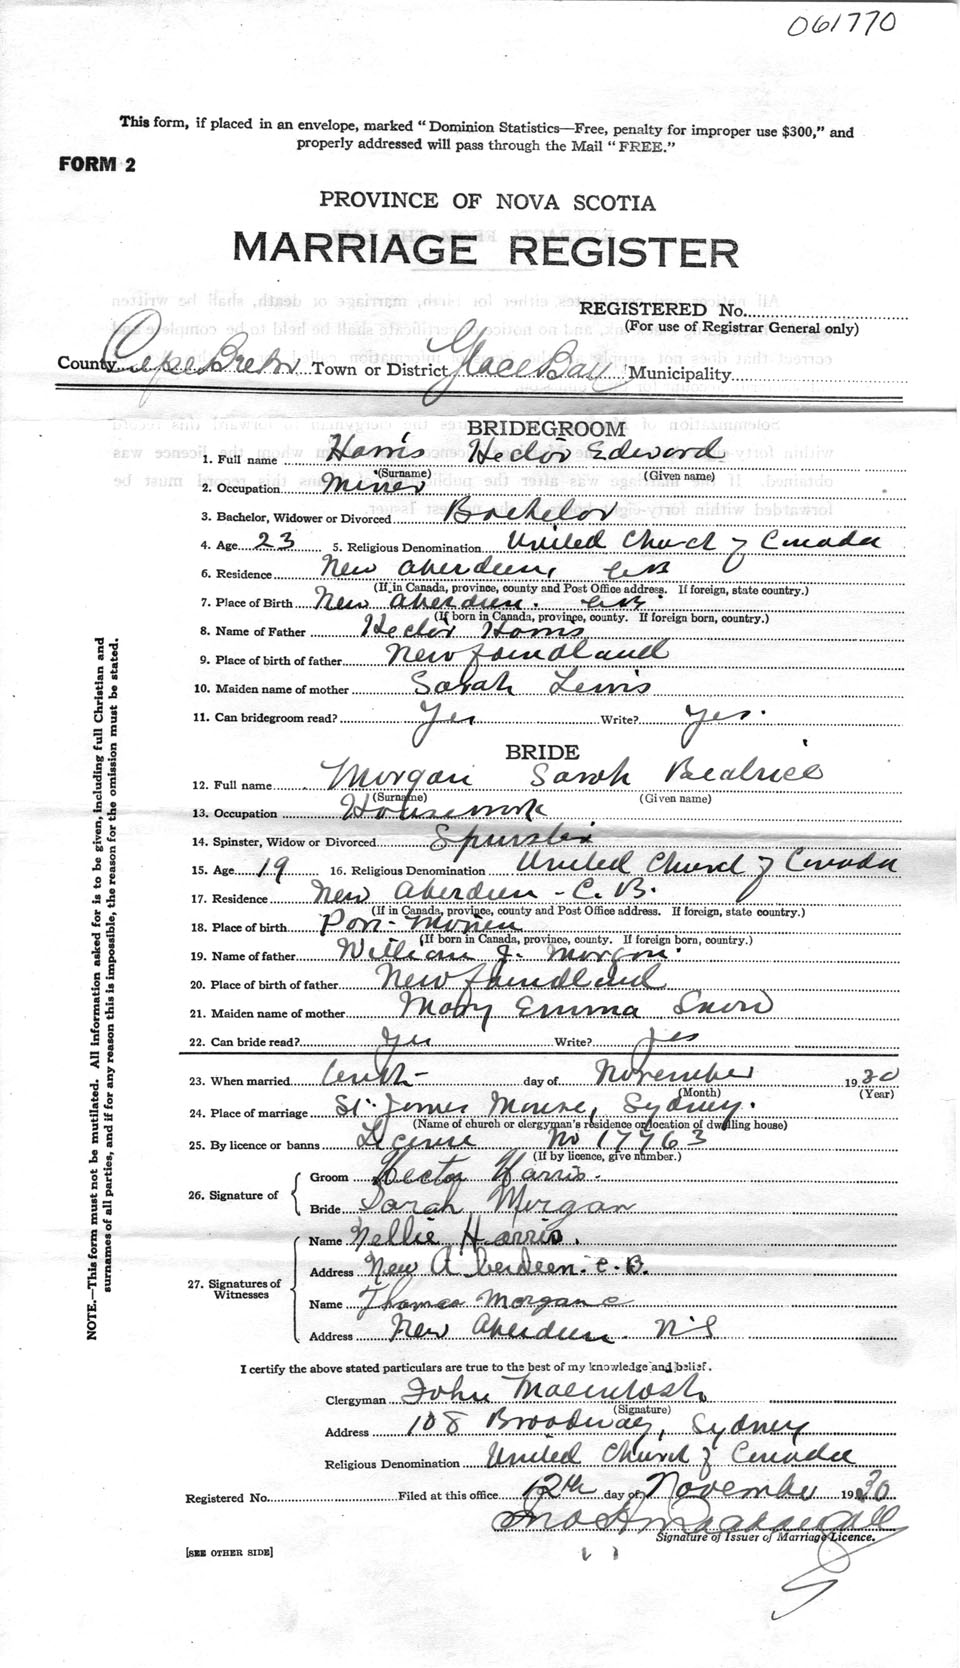 061770
This form, if placed in an envelope, marked "Dominion Statistics—Free, penalty for improper use $300," and
properly addressed will pass through the Mail "FREE."
FORM 2
PROVINCE OF NOVA SCOTIA
MARRIAGE REGISTER
REGISTERED No.
(For use of Registrar General only)
County Cape Breton Town or District Glace Bay Municipality
BRIDEGROOM
1. Full name Harris Hector Edward
(Surname) (Given name)
2. Occupation Miner
3. Bachelor, Widower or Divorced Bachelor
4. Age 23 5. Religious Denomination United Church of Canada
6. Residence New Aberdeen, CB
(If in Canada, province, county and Post Office address. If foreign, state country.)
7. Place of Birth New Aberdeen. CB
(If born in Canada, province, county. If foreign born, country.)
8. Name of Father Hector Harris
9. Place of birth of father Newfoundland
10. Maiden name of mother Sarah Lewis
11. Can bridegroom read? Yes Write? Yes.
BRIDE
12. Full name Morgan Sarah Beatrice
(Surname) (Given name)
13. Occupation Housework
14. Spinster, Widow or Divorced Spinster
15. Age 19 16. Religious Denomination United Church of Canada
17. Residence New Aberdeen - C. B.
(If in Canada, province, county and Post Office address. If foreign, state country.)
18. Place of birth Port Morien
(If born in Canada, province, county. If foreign born, country.)
19. Name of father William J. Morgan
20. Place of birth of father Newfoundland
21. Maiden name of mother Mary Emma Snow
22. Can bride read? Yes Write? Yes
23. When married tenth day of November 1930
(Month) (Year)
24. Place of marriage St. James Manse, Sydney.
(Name of church or clergyman's residence or location of dwelling house)
25. By licence or banns License No 17763
(If by licence, give number.)
26. Signature of
Groom Hector Harris.
Bride Sarah Morgan
27. Signatures of Witnesses
Name Nellie Harris.
Address New Aberdeen. C. B.
Name Thomas Morgan
Address New Aberdeen. N.S
I certify the above stated particulars are true to the best of my knowledge and belief.
Clergyman John Macintosh
(Signature)
Address 108 Broadway, Sydney
Religious Denomination United Church of Canada
Registered No. Filed at this office 12th day of November 1930
Signature of Issuer of Marriage Licence.
[SEE OTHER SIDE]
NOTE.—This form must not be mutilated. All information asked for is to be given, including full Christian and
surnames of all parties, and if for any reason this is impossible, the reason for the omission must be stated.